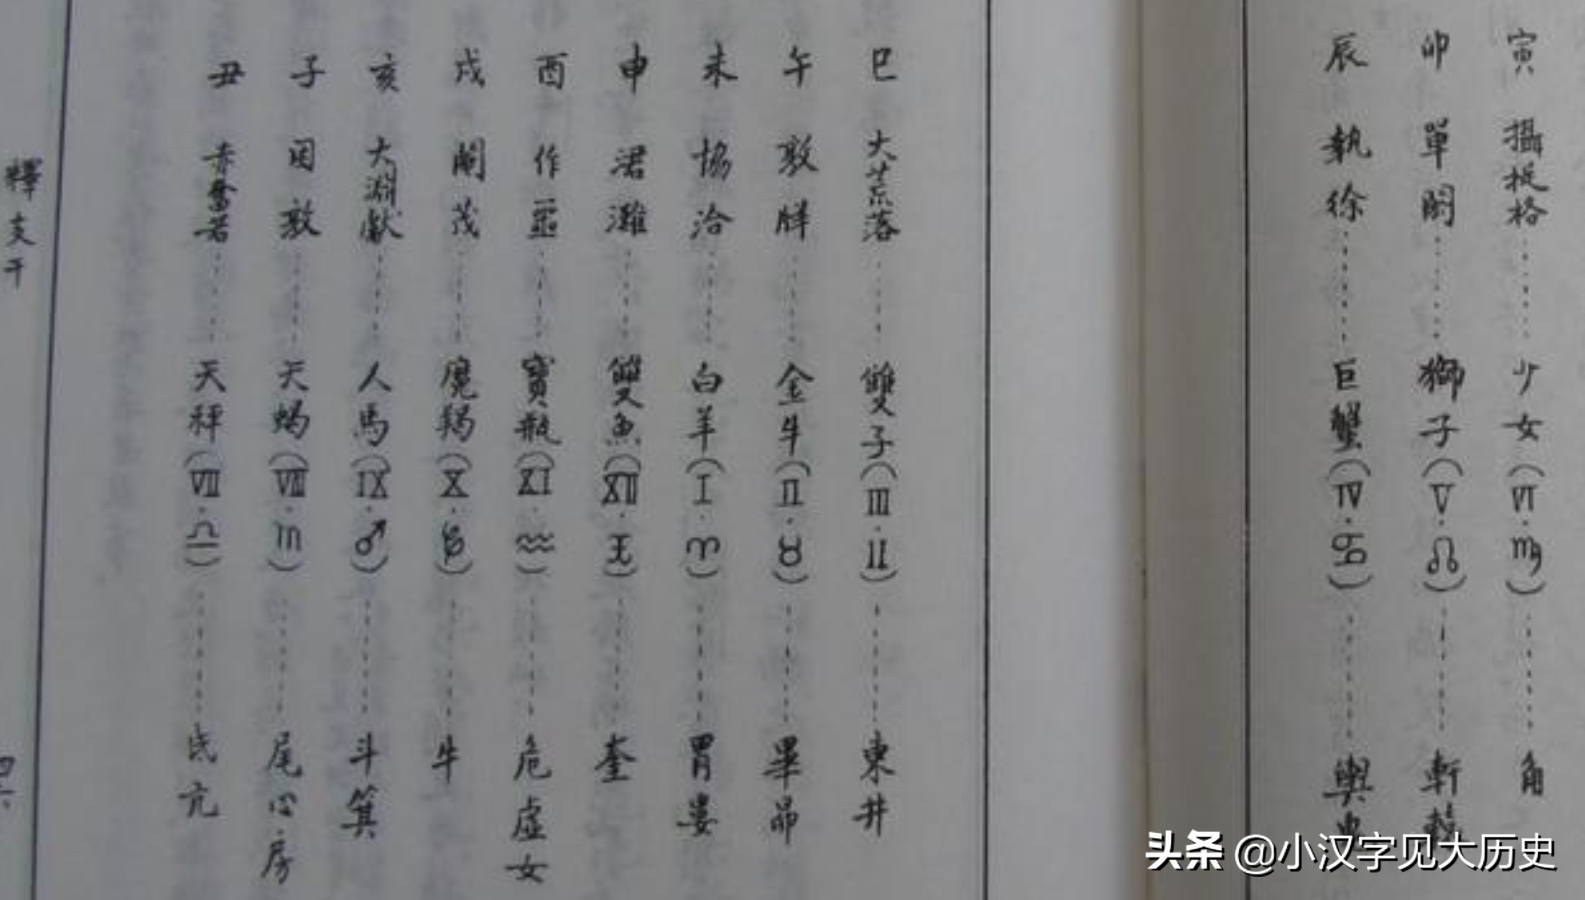 寅 攝提格……少女(Ⅵ·♍)……角
卯 單閼……獅子(Ⅴ·♌)……軒轅
辰 執徐……巨蟹(Ⅳ·♋)……輿鬼
巳 大荒落……雙子(Ⅲ·Ⅱ)……東井
午 敦牂……金牛(Ⅱ·♉)……畢昴
未 協洽……白羊(Ⅰ·♈)……胃婁
申 涒灘……雙魚(Ⅻ·♓)……奎
酉 作噩……寶瓶(Ⅺ·♒)……危虛女
戌 閹茂……魔羯(Ⅹ·♑)……牛
亥 大淵獻……人馬(Ⅸ·♂)……斗箕
子 困敦……天蝎(Ⅷ·♏)……尾心房
丑 赤奮若……天秤(Ⅶ·♎)……氐亢
釋支干
四六
头条 @小汉字见大历史